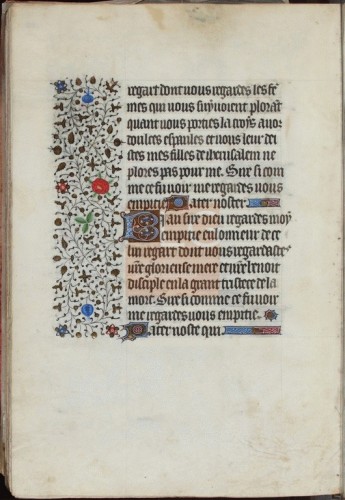 regart dont uous regardes les fe
mes qui uous suyuoient plorãt
quant uous porties la croys a uoz
doulces espaules et uous leur dei
stes mes filles de iherusalem ne
plores pas pour me. Sire si com
me ce fu uoir me regardes uous
en pitie Pater noster
Biau sire dieu regardes moy
en pitie en lonneur de ce
lui regart dont uous regardastes
ur̃e glorieuse mere et ur̃e benoit
disciple en la grant tristece de la
mort. Sire si comme ce fu uoir
me regardes uous en pitie.
Pater noste qui